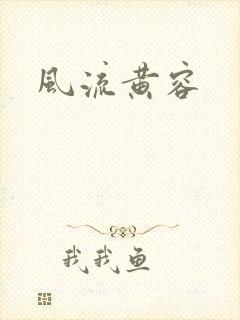 風流黄容
我我鱼